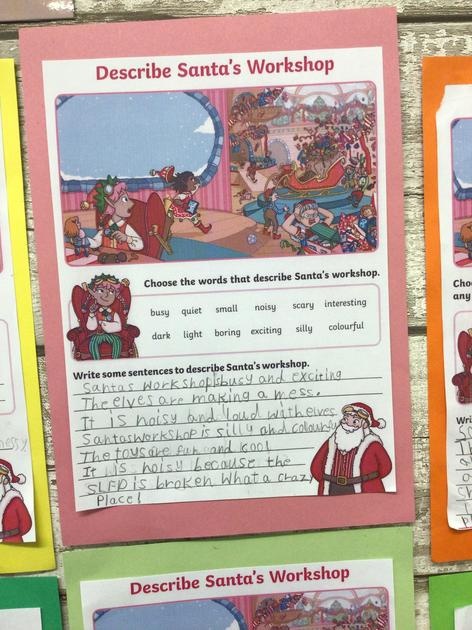 Describe Santa's Workshop
Choose the words that describe Santa's workshop.
busy quiet small noisy scary interesting
dark light boring exciting silly colourful
Write some sentences to describe Santa's workshop.
Santas workshop is busy and exciting
The elves are making a mess.
It is noisy and loud with elves
Santas workshop is silly and colourful
The toys are fun and cool
It is noisy because the
SLED is broken what a crazy
Place!
Describe Santa's Workshop